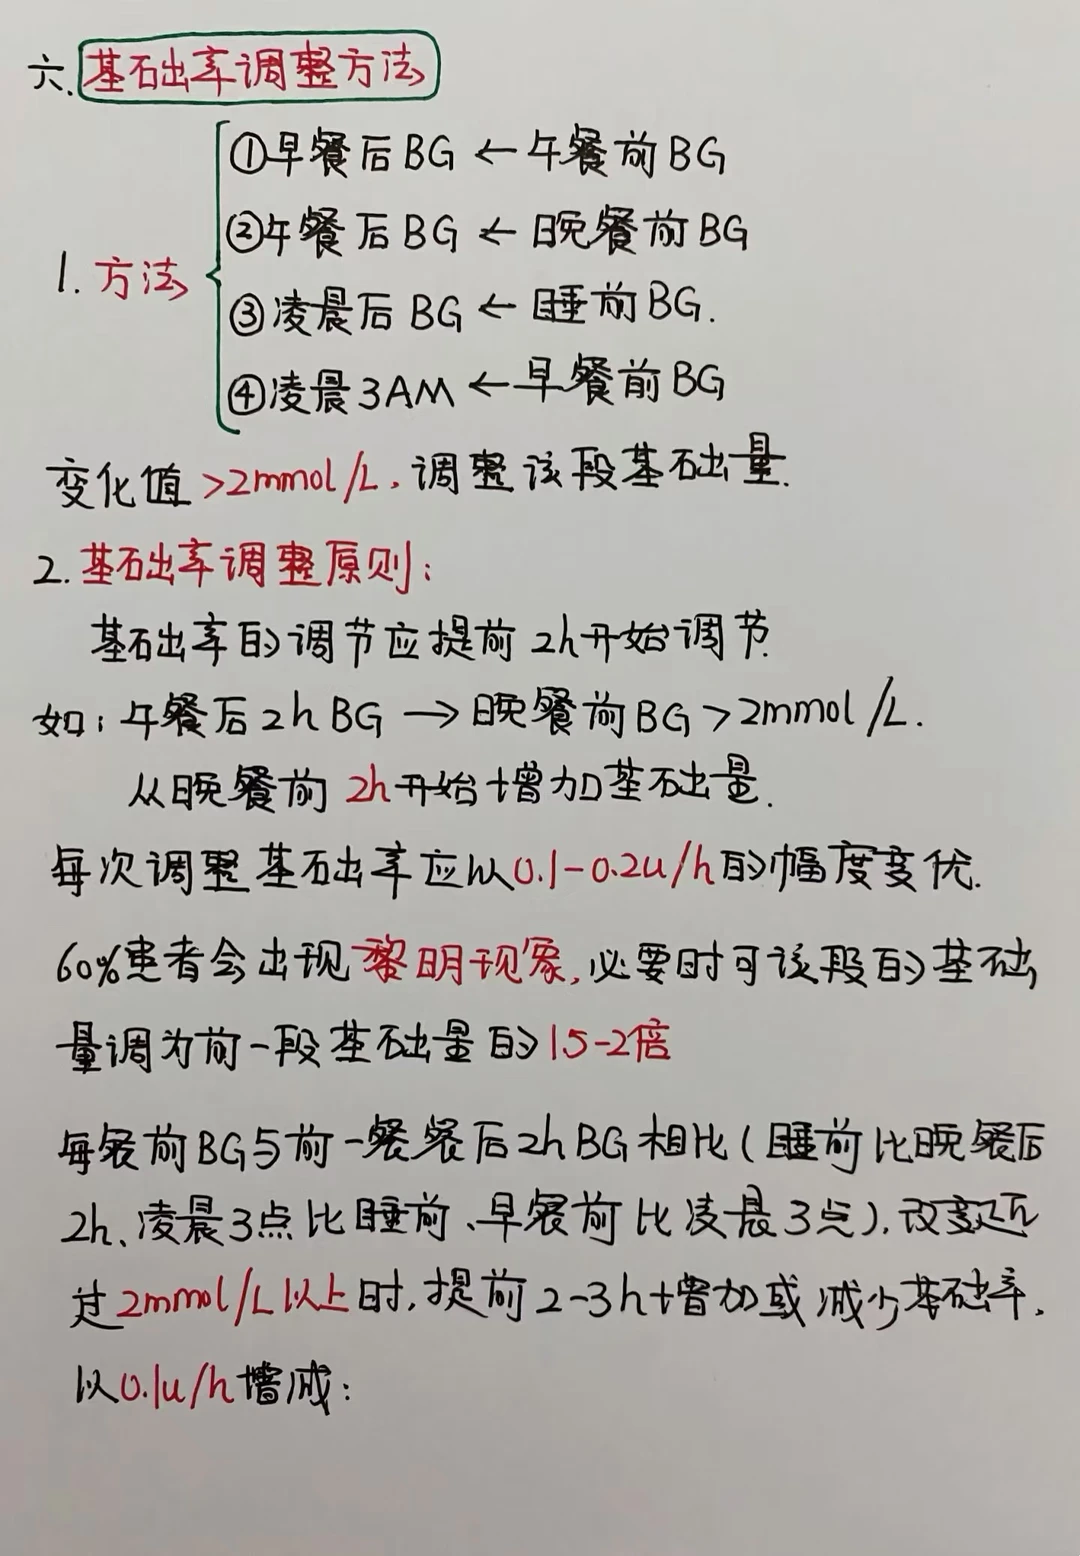 六.基础率调整方法
①早餐后BG←午餐前BG
②午餐后BG←晚餐前BG
1.方法
③凌晨后BG←睡前BG.
④凌晨3AM←早餐前BG
变化值>2mmol/L,调整该段基础量.
2.基础率调整原则:
基础率的调节应提前2h开始调节.
如:午餐后2hBG→晚餐前BG>2mmol/L.
从晚餐前2h开始增加基础量.
每次调整基础率应以0.1-0.2u/h的幅度变优.
60%患者会出现黎明现象,必要时可该段的基础
量调为前一段基础量的1.5-2倍
每餐前BG与前一餐餐后2hBG相比(睡前比晚餐后
2h、凌晨3点比睡前、早餐前比凌晨3点).改变超
过2mmol/L以上时,提前2-3h增加或减少基础率,
以0.1u/h增减: